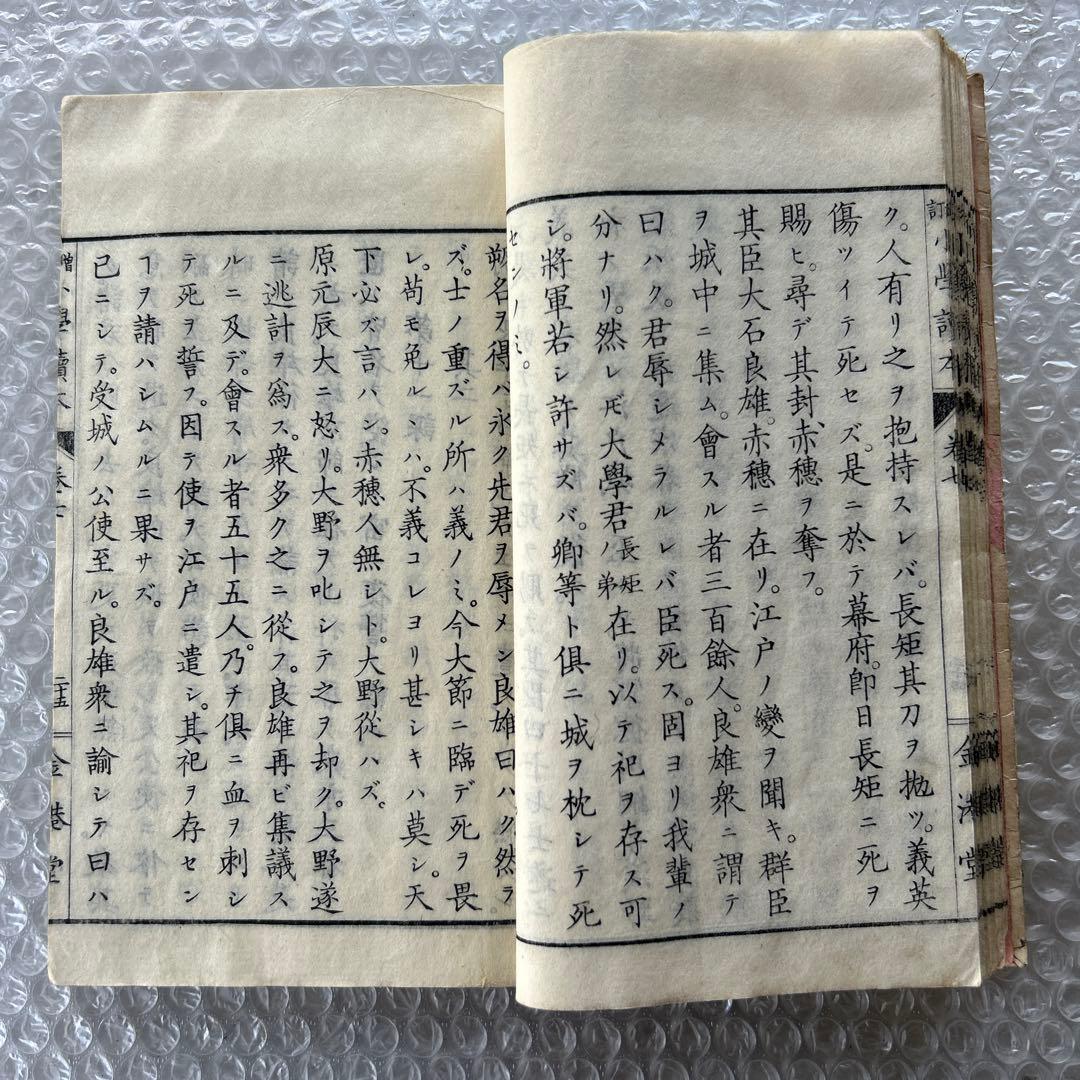 ク。人有リ之ヲ抱持スレバ。長矩其刀ヲ抛ツ。義英
傷ツイテ死セズ。是ニ於テ幕府。卽日長矩ニ死ヲ
賜ヒ。尋デ其封赤穗ヲ奪フ。
其臣大石良雄。赤穗ニ在リ。江戸ノ變ヲ聞キ。群臣
ヲ城中ニ集ム。會スル者三百餘人。良雄衆ニ謂テ
曰ハク。君辱シメラルレバ臣死ス。固ヨリ我輩ノ
分ナリ。然レ𪜈大學君長矩ノ弟在リ。以テ祀ヲ存ス可
シ。將軍若シ許サズバ。卿等ト俱ニ城ヲ枕シテ死
センノミ。
名ヲ得バ永ク先君ヲ辱メン良雄曰ハク然ラ
ズ。士ノ重ズル所ハ義ノミ。今大節ニ臨デ死ヲ畏
レ。苟モ免ルヽ謀ハ。不義コレヨリ甚シキハ莫シ。天
下必ズ言ハン。赤穗人無シト。大野從ハズ。
原元辰大ニ怒リ。大野ヲ叱シテ之ヲ却ク。大野遂
ニ逃計ヲ爲ス。衆多ク之ニ從フ。良雄再ビ集議ス
ルニ及デ。會スル者五十五人。乃チ俱ニ血ヲ刺シ
テ死ヲ誓フ。因テ使ヲ江戸ニ遣シ。其祀ヲ存セン
ヿヲ請ハシムルニ果サズ。
已ニシテ。受城ノ公使至ル。良雄衆ニ諭シテ曰ハ
小學讀本 卷七 二十五 金港堂